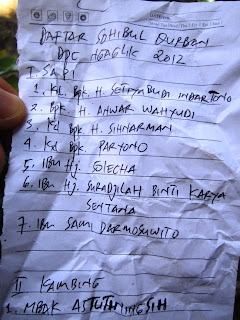 DAFTAR SOHIBUL QURBAN
DPC NGAGLIK 2012
I. SAPI
1. Kel. Bpk. H. SETIYABUDI INDARTONO
2. Bpk. H. ANWAR WAHYUDI
3. Kel Bpk. H. SIHNARMAN
4. Kel Bpk. PARYONO
5. IBU Hj. SOLECHA
6. IBU Hj. SURADJILAH BINTI KARYA
SENTANA
7. IBU SAMI DARMOSUWITO
II KAMBING
1. MBAK ASTUTININGSIH